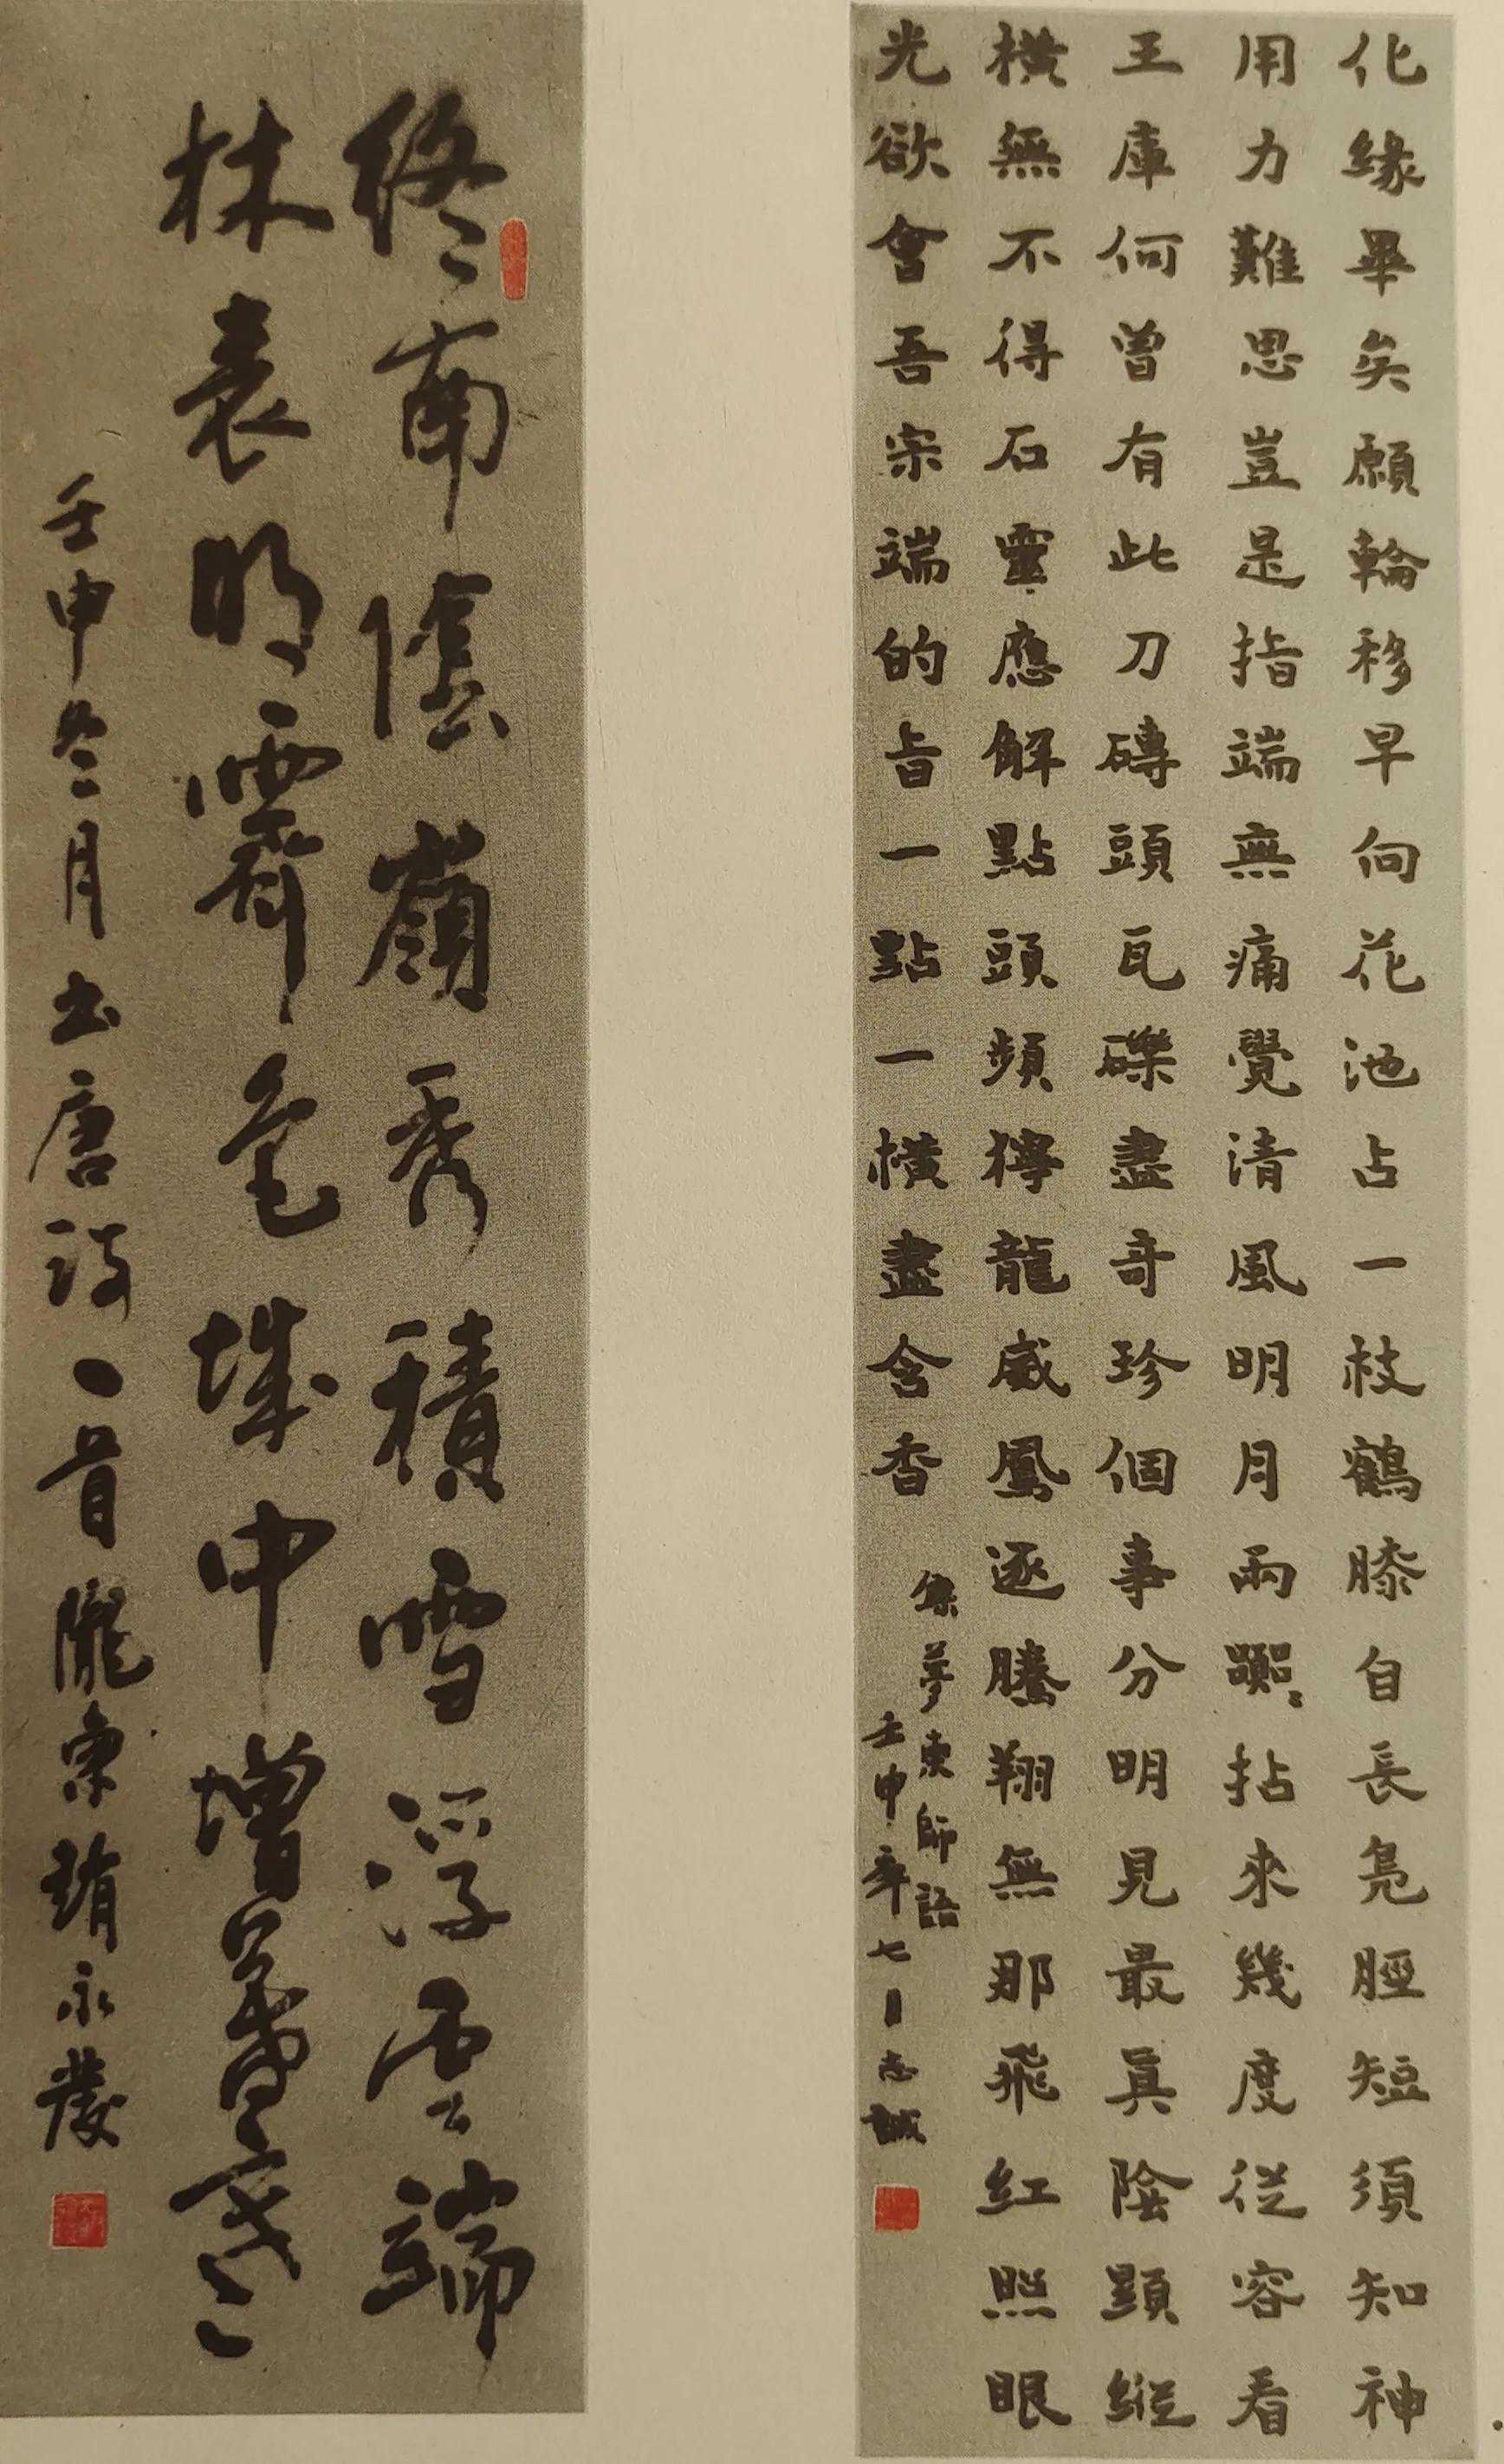 化緣畢矣願輪移早向花池占一枝鶴膝自長鳧脛短須知神
用力難思豈是指端無痛覺清風明月兩拈來幾度從容看
王庫何曾有此刀磚頭瓦礫盡奇珍個事分明見最真陰顯縱
橫無不得石靈應解點頭頻獰龍威鳳逐騰翔無那飛紅照眼
光欲會吾宗端的旨一點一橫盡含香
集夢東師語
壬申年七月志誠
終南陰嶺秀積雪浮雲端
林表明霽色城中增暮寒
壬申冬月書唐詩一首隴東靖永